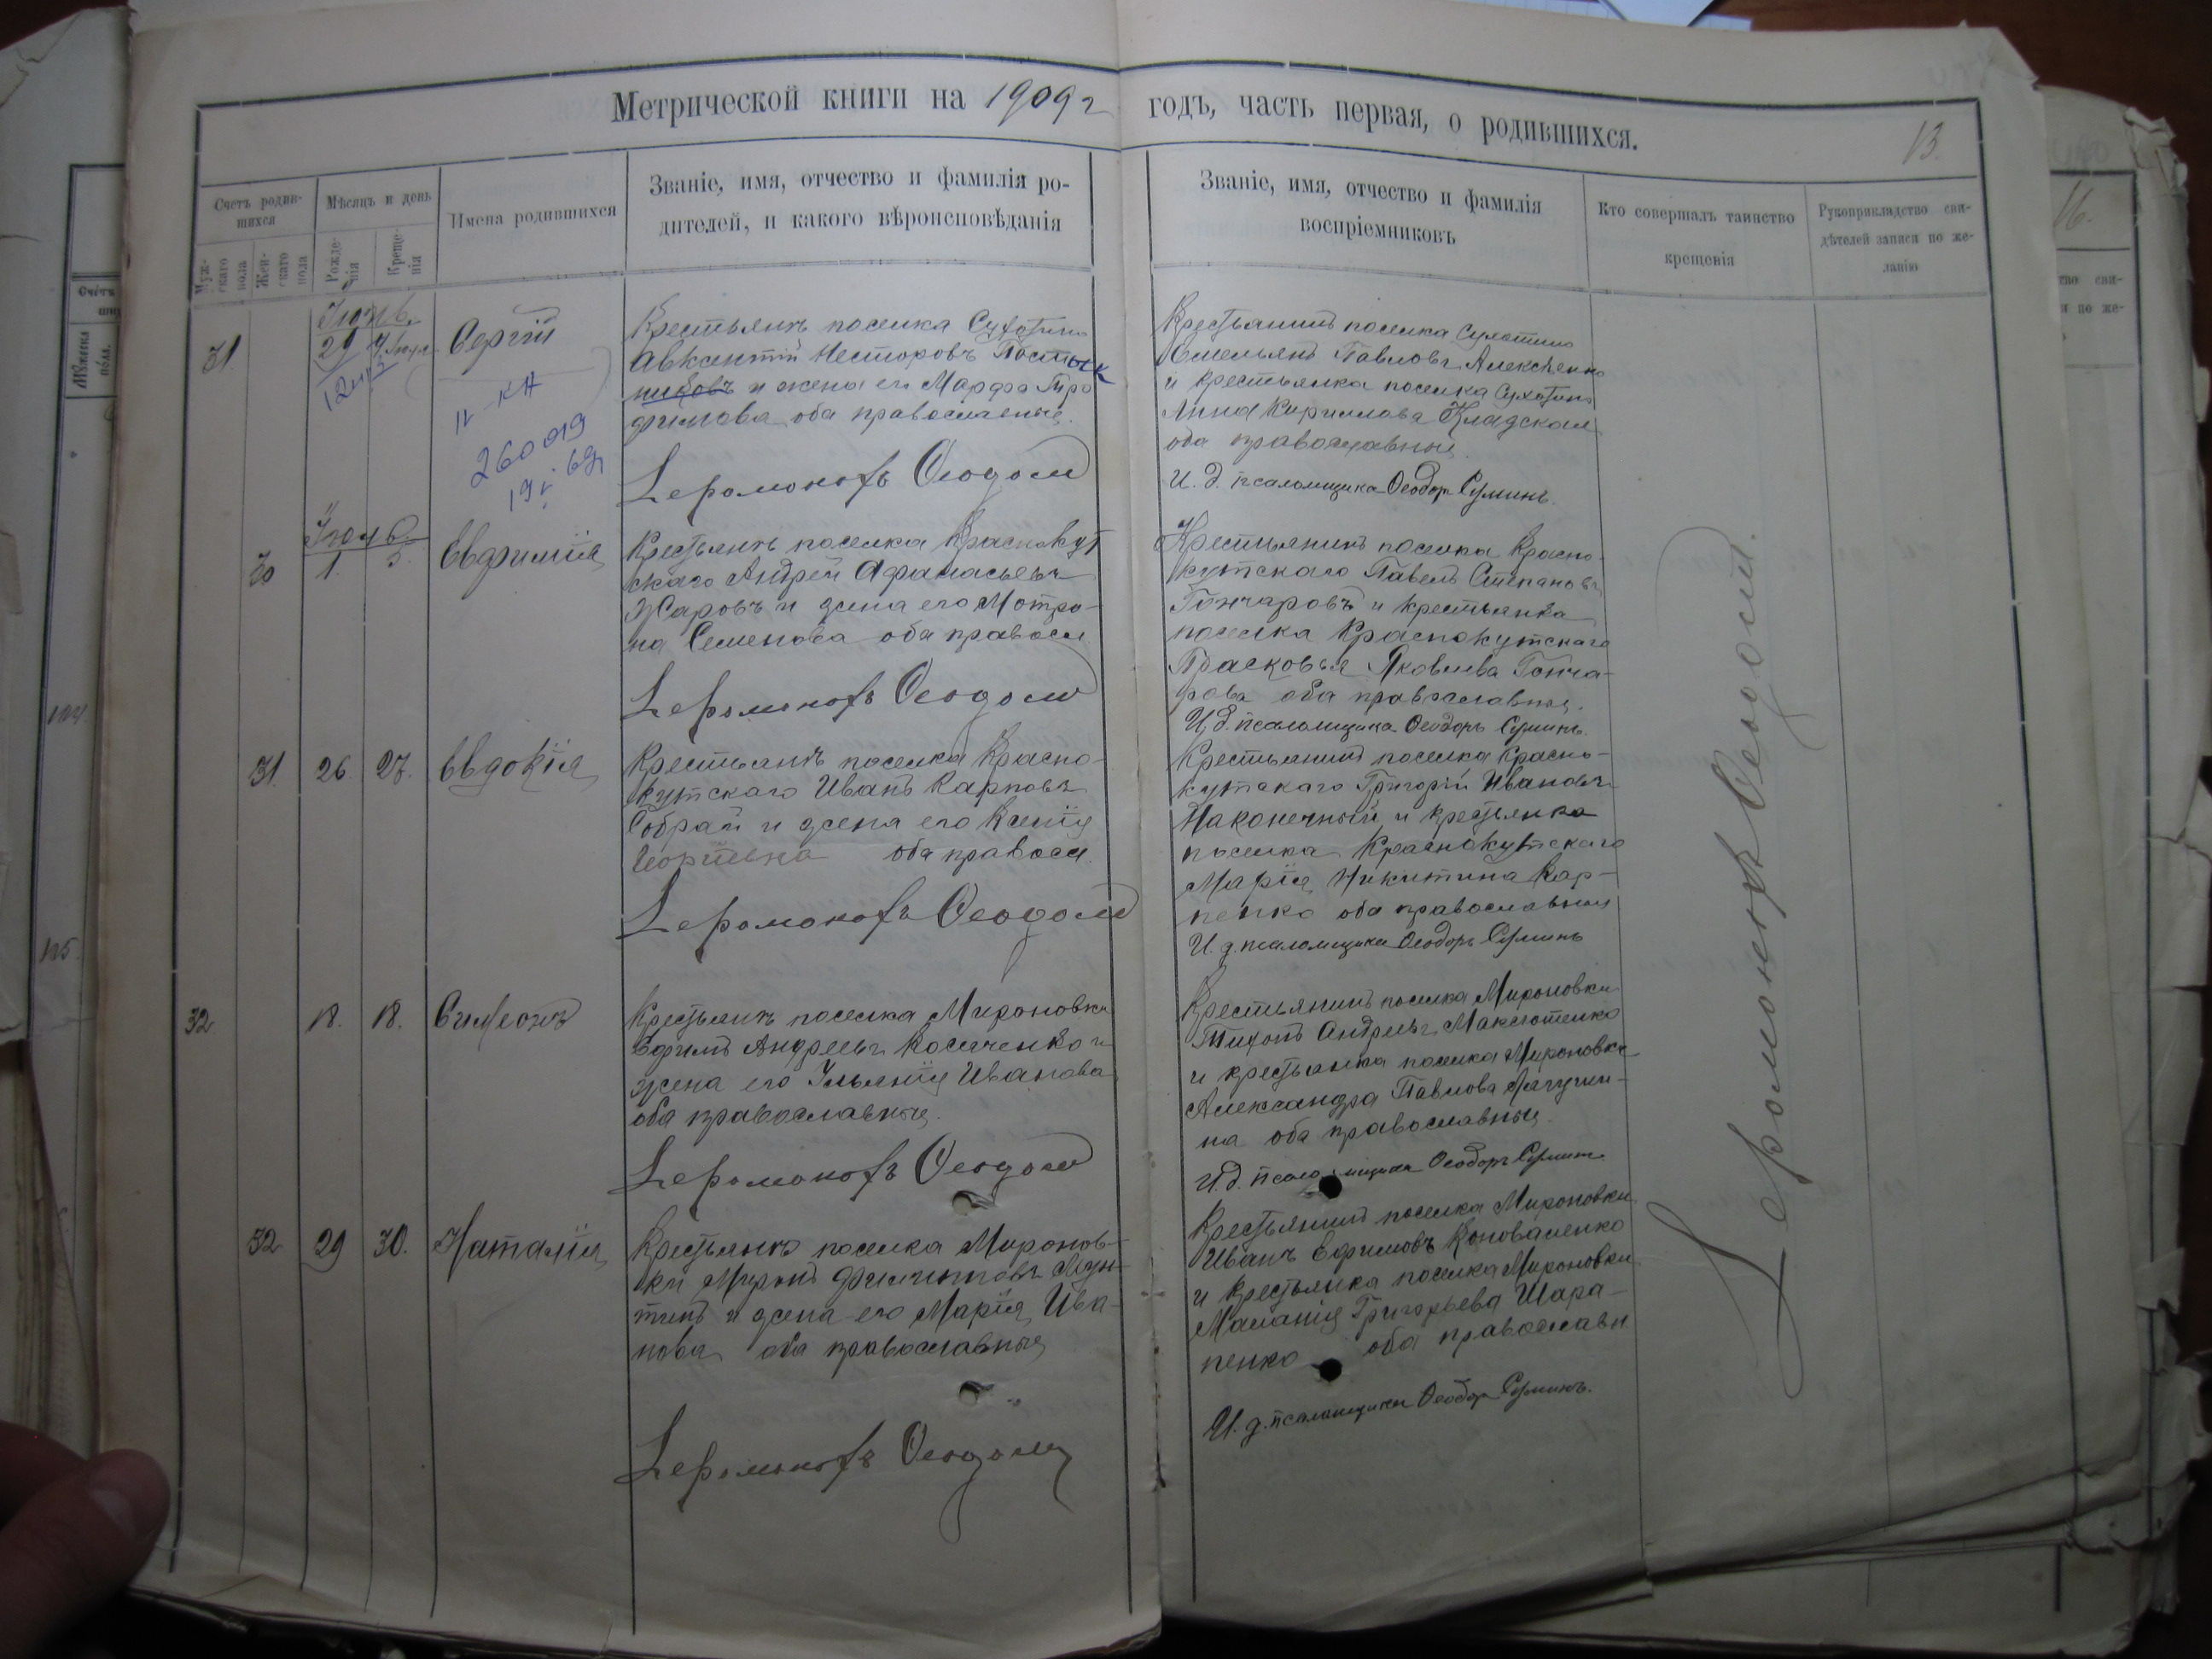 Метрической книги на 1909 г годъ, часть первая, о родившихся.
13.
Счетъ родив-
шихся
Муж-
скаго
пола
Жен-
скаго
пола
Мѣсяцъ и день
Рожде-
нія
Креще-
нія
Имена родившихся
Званіе, имя, отчество и фамилія ро-
дителей, и какого вѣроисповѣданія
Званіе, имя, отчество и фамилія
воспріемниковъ
Кто совершалъ таинство
крещенія
Рукоприкладство сви-
дѣтелей записи по же-
ланію
31
29
Сергій
260019
Крестьянинъ поселка Сухотина
Авксентій Несторовъ Постык
никовъ и жена его Марфа Тро
фимова оба православные.
Іеромонахъ Ѳеодосій
Крестьянинъ поселка Сухотина
Емельянъ Павловъ Алексѣенко
и крестьянка поселка Сухотина
Анна Кириллова Кладская
оба православные.
И. д. псаломщика Ѳеодоръ Суминъ.
Іюль
30
1.
5.
Евфимія
Крестьянинъ поселка Краснокут
скаго Андрей Афанасьевъ
Жаровъ и жена его Мотро-
на Семенова оба правосл.
Іеромонахъ Ѳеодосій
Крестьянинъ поселка Красно-
кутскаго Павелъ Степановъ
Гончаровъ и крестьянка
поселка Краснокутскаго
Прасковья Яковлева Гонча-
рова оба православные.
И. д. псаломщика Ѳеодоръ Суминъ.
31.
26.
27.
Евдокія
Крестьянинъ поселка Красно-
кутскаго Иванъ Карповъ
и жена его Ксенія
оба правосл.
Іеромонахъ Ѳеодосій
Крестьянинъ поселка Красно-
кутскаго Григорій Ивановъ
Наконечный и крестьянка
поселка Краснокутскаго
Марія Никитина Кар-
пенко оба православные
И. д. псаломщика Ѳеодоръ Суминъ
32
18.
18.
Симеонъ
Крестьянинъ поселка Мироновки
Ефимъ Андреевъ Косяченко и
жена его Ульянія Иванова
оба православные.
Іеромонахъ Ѳеодосій
Крестьянинъ поселка Мироновки
Тихонъ Андреевъ Максютенко
и крестьянка поселка Мироновки
Александра Павлова
на оба православные.
И. д. псаломщика Ѳеодоръ Суминъ.
32
29
30.
Наталія
Крестьянинъ поселка Миронов-
ки Миронъ Филипповъ
и жена его Марія Ива-
нова оба православные
Іеромонахъ Ѳеодосій
Крестьянинъ поселка Мироновки
Иванъ Ефимовъ Коноваленко
и крестьянка поселка Мироновки
Маланія Григорьева Шара-
пенко оба православн
И. д. псаломщика Ѳеодоръ Суминъ.
Іеромонахъ Ѳеодосій.
104.
105.
16.